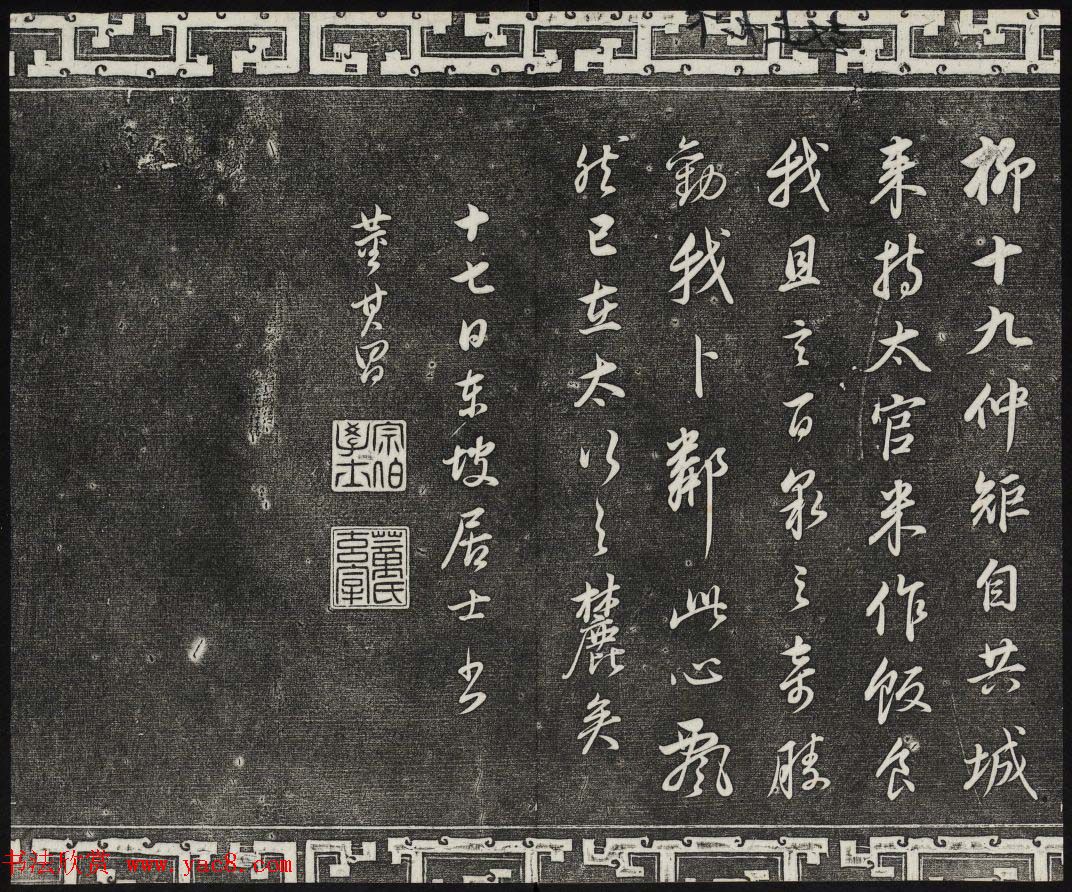 柳十九仲矩自共城
来持太官米作飯食
我且言百泉之奇勝
勸我卜鄰此心飄
然已在太行之麓矣
十七日東坡居士書
董其昌
宗伯學士
董氏玄宰
书法欣赏 www.yac8.com